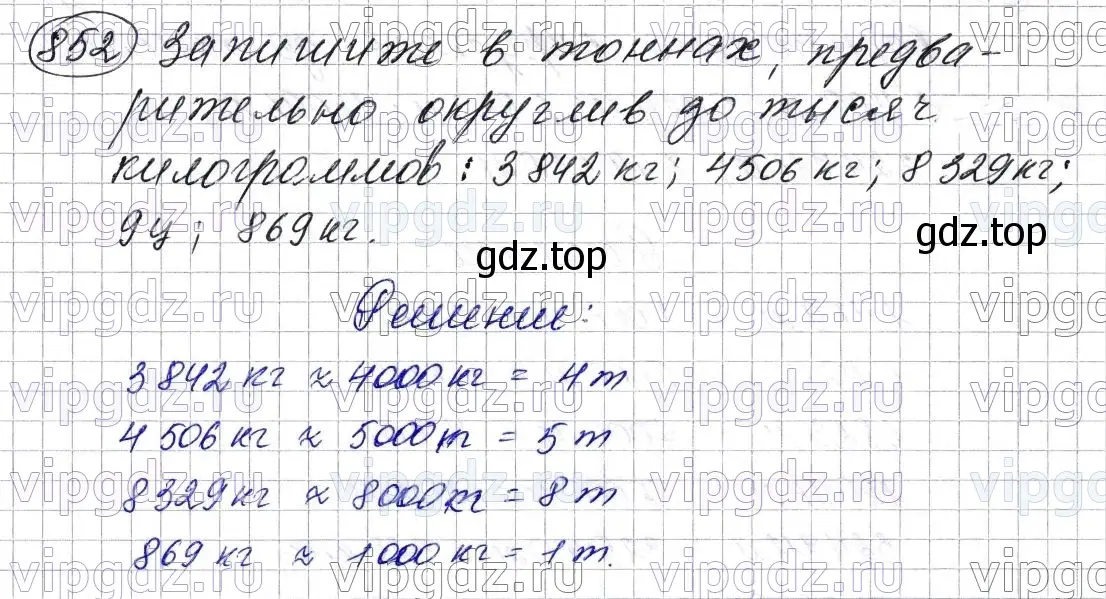 852 Запишите в тоннах, предва-
рительно округлив до тысяч
килограммов: 3 842 кг; 4506 кг; 8 329 кг;
9ц; 869 кг.
gdz.top
gdz.top
Решение:
3 842 кг ≈ 4000 кг = 4 т
4 506 кг ≈ 5000 кг = 5 т
8 329 кг ≈ 8000 кг = 8 т
869 кг ≈ 1 000 кг = 1 т.
vipgdz.ru